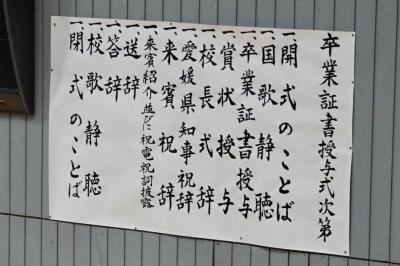 卒業証書授与式次第
一開式のことば
一国歌静聴
一卒業証書授与
一賞状授与
一校長式辞
一愛媛県知事祝辞
一来賓祝辞
一来賓紹介並びに祝電祝詞披露
一送辞
一答辞
一校歌静聴
一閉式のことば